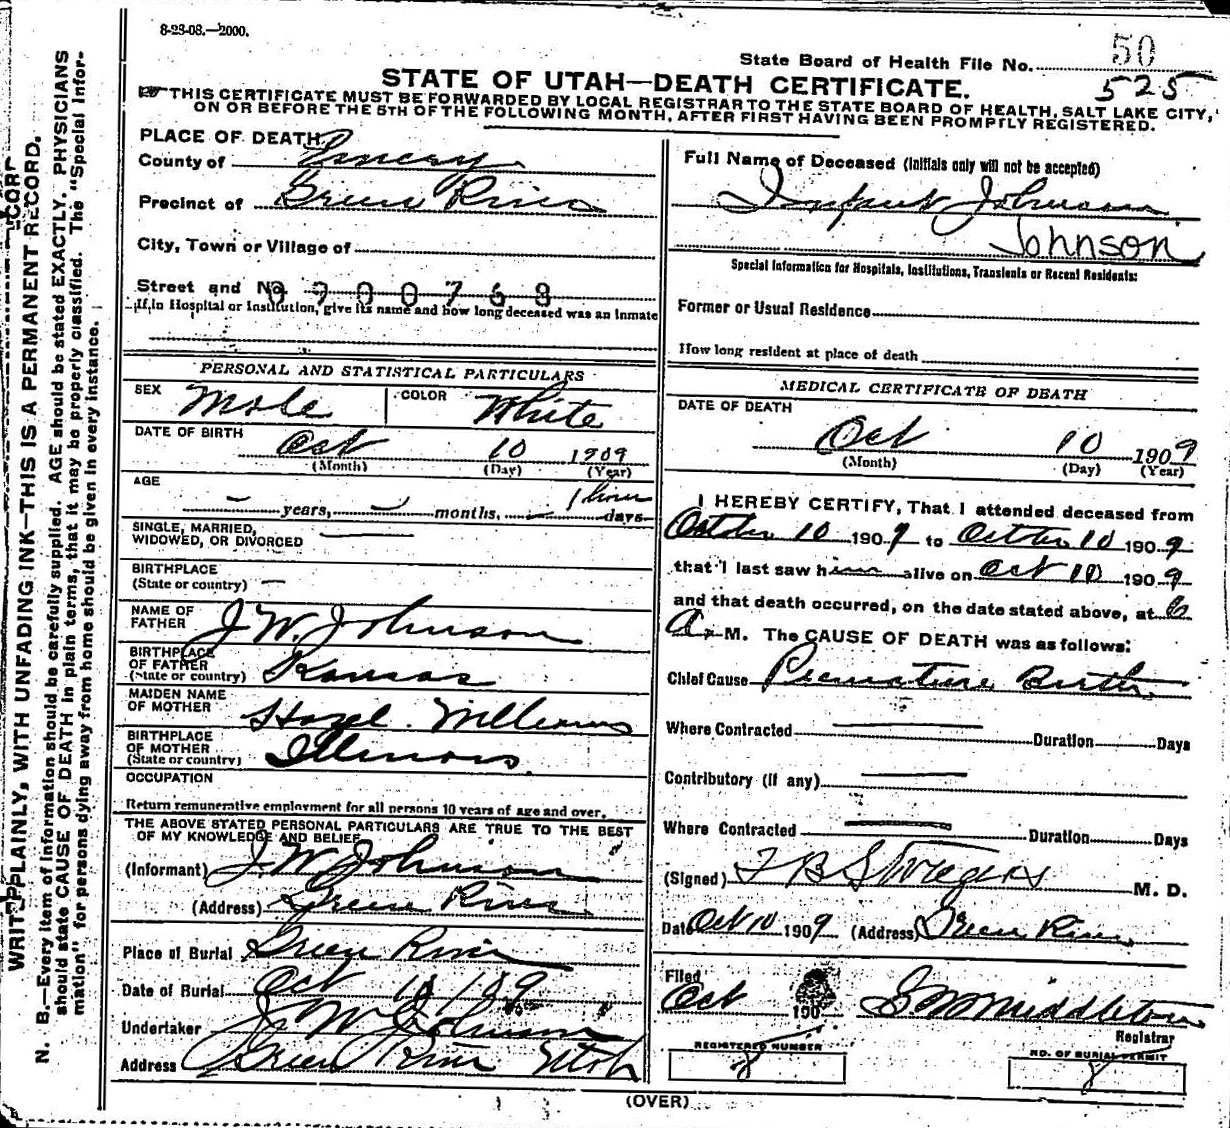 8-23-08.—2000.
State Board of Health File No. 50
525
STATE OF UTAH—DEATH CERTIFICATE.
THIS CERTIFICATE MUST BE FORWARDED BY LOCAL REGISTRAR TO THE STATE BOARD OF HEALTH, SALT LAKE CITY,
ON OR BEFORE THE 5TH OF THE FOLLOWING MONTH, AFTER FIRST HAVING BEEN PROMPTLY REGISTERED.
WRITE PLAINLY, WITH UNFADING INK—THIS IS A PERMANENT RECORD.
N. B.—Every item of information should be carefully supplied. AGE should be stated EXACTLY. PHYSICIANS
should state CAUSE OF DEATH in plain terms, that it may be properly classified. The "Special Infor-
mation" for persons dying away from home should be given in every instance.
PLACE OF DEATH
County of Emery
Precinct of Green River
City, Town or Village of
Street and No. 0900768
If in Hospital or Institution, give its name and how long deceased was an inmate
PERSONAL AND STATISTICAL PARTICULARS
SEX Male COLOR White
DATE OF BIRTH Oct 10 1909
(Month) (Day) (Year)
AGE 1 hour
years, months, days
SINGLE, MARRIED,
WIDOWED, OR DIVORCED
BIRTHPLACE
(State or country)
NAME OF
FATHER J. W. Johnson
BIRTHPLACE
OF FATHER
(State or country) Kansas
MAIDEN NAME
OF MOTHER Hazel Williams
BIRTHPLACE
OF MOTHER
(State or country) Illinois
OCCUPATION
Return remunerative employment for all persons 10 years of age and over.
THE ABOVE STATED PERSONAL PARTICULARS ARE TRUE TO THE BEST
OF MY KNOWLEDGE AND BELIEF
(Informant) J. W. Johnson
(Address) Green River
Place of Burial Green River
Date of Burial Oct
Undertaker J. W. Johnson
Address Green River Utah
Full Name of Deceased (Initials only will not be accepted)
Infant Johnson
Johnson
Special Information for Hospitals, Institutions, Transients or Recent Residents:
Former or Usual Residence
How long resident at place of death
MEDICAL CERTIFICATE OF DEATH
DATE OF DEATH
Oct 10 1909
(Month) (Day) (Year)
I HEREBY CERTIFY, That I attended deceased from
October 10 1909 to October 10 1909
that I last saw him alive on Oct 10 1909
and that death occurred, on the date stated above, at 6
A. M. The CAUSE OF DEATH was as follows:
Chief Cause Premature Birth
Where Contracted Duration Days
Contributory (if any)
Where Contracted Duration Days
(Signed) M. D.
Date Oct 10 1909 (Address) Green River
Filed
Oct 190 Middleton
Registrar
REGISTERED NUMBER
8
NO. OF BURIAL PERMIT
8
(OVER)